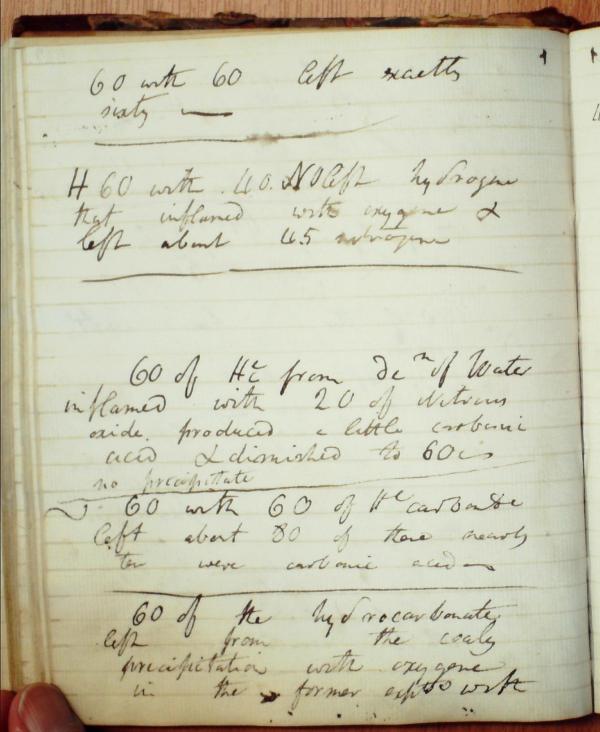 60 with 60 left exactly
sixty —
H 60 with 40. NO left hydrogene
that inflamed with oxygene &
left about 45 nitrogene
60 of Hc from Decn of Water
inflamed with 20 of Nitrous
oxide. produced a little carbonic
acid & diminished to 60
no precipitate
60 with 60 of Hc carbonate
left about 80 of these nearly
ten were carbonic acid
60 of the hydrocarbonate
left from the coaly
precipitation with oxygene
in the former expts with